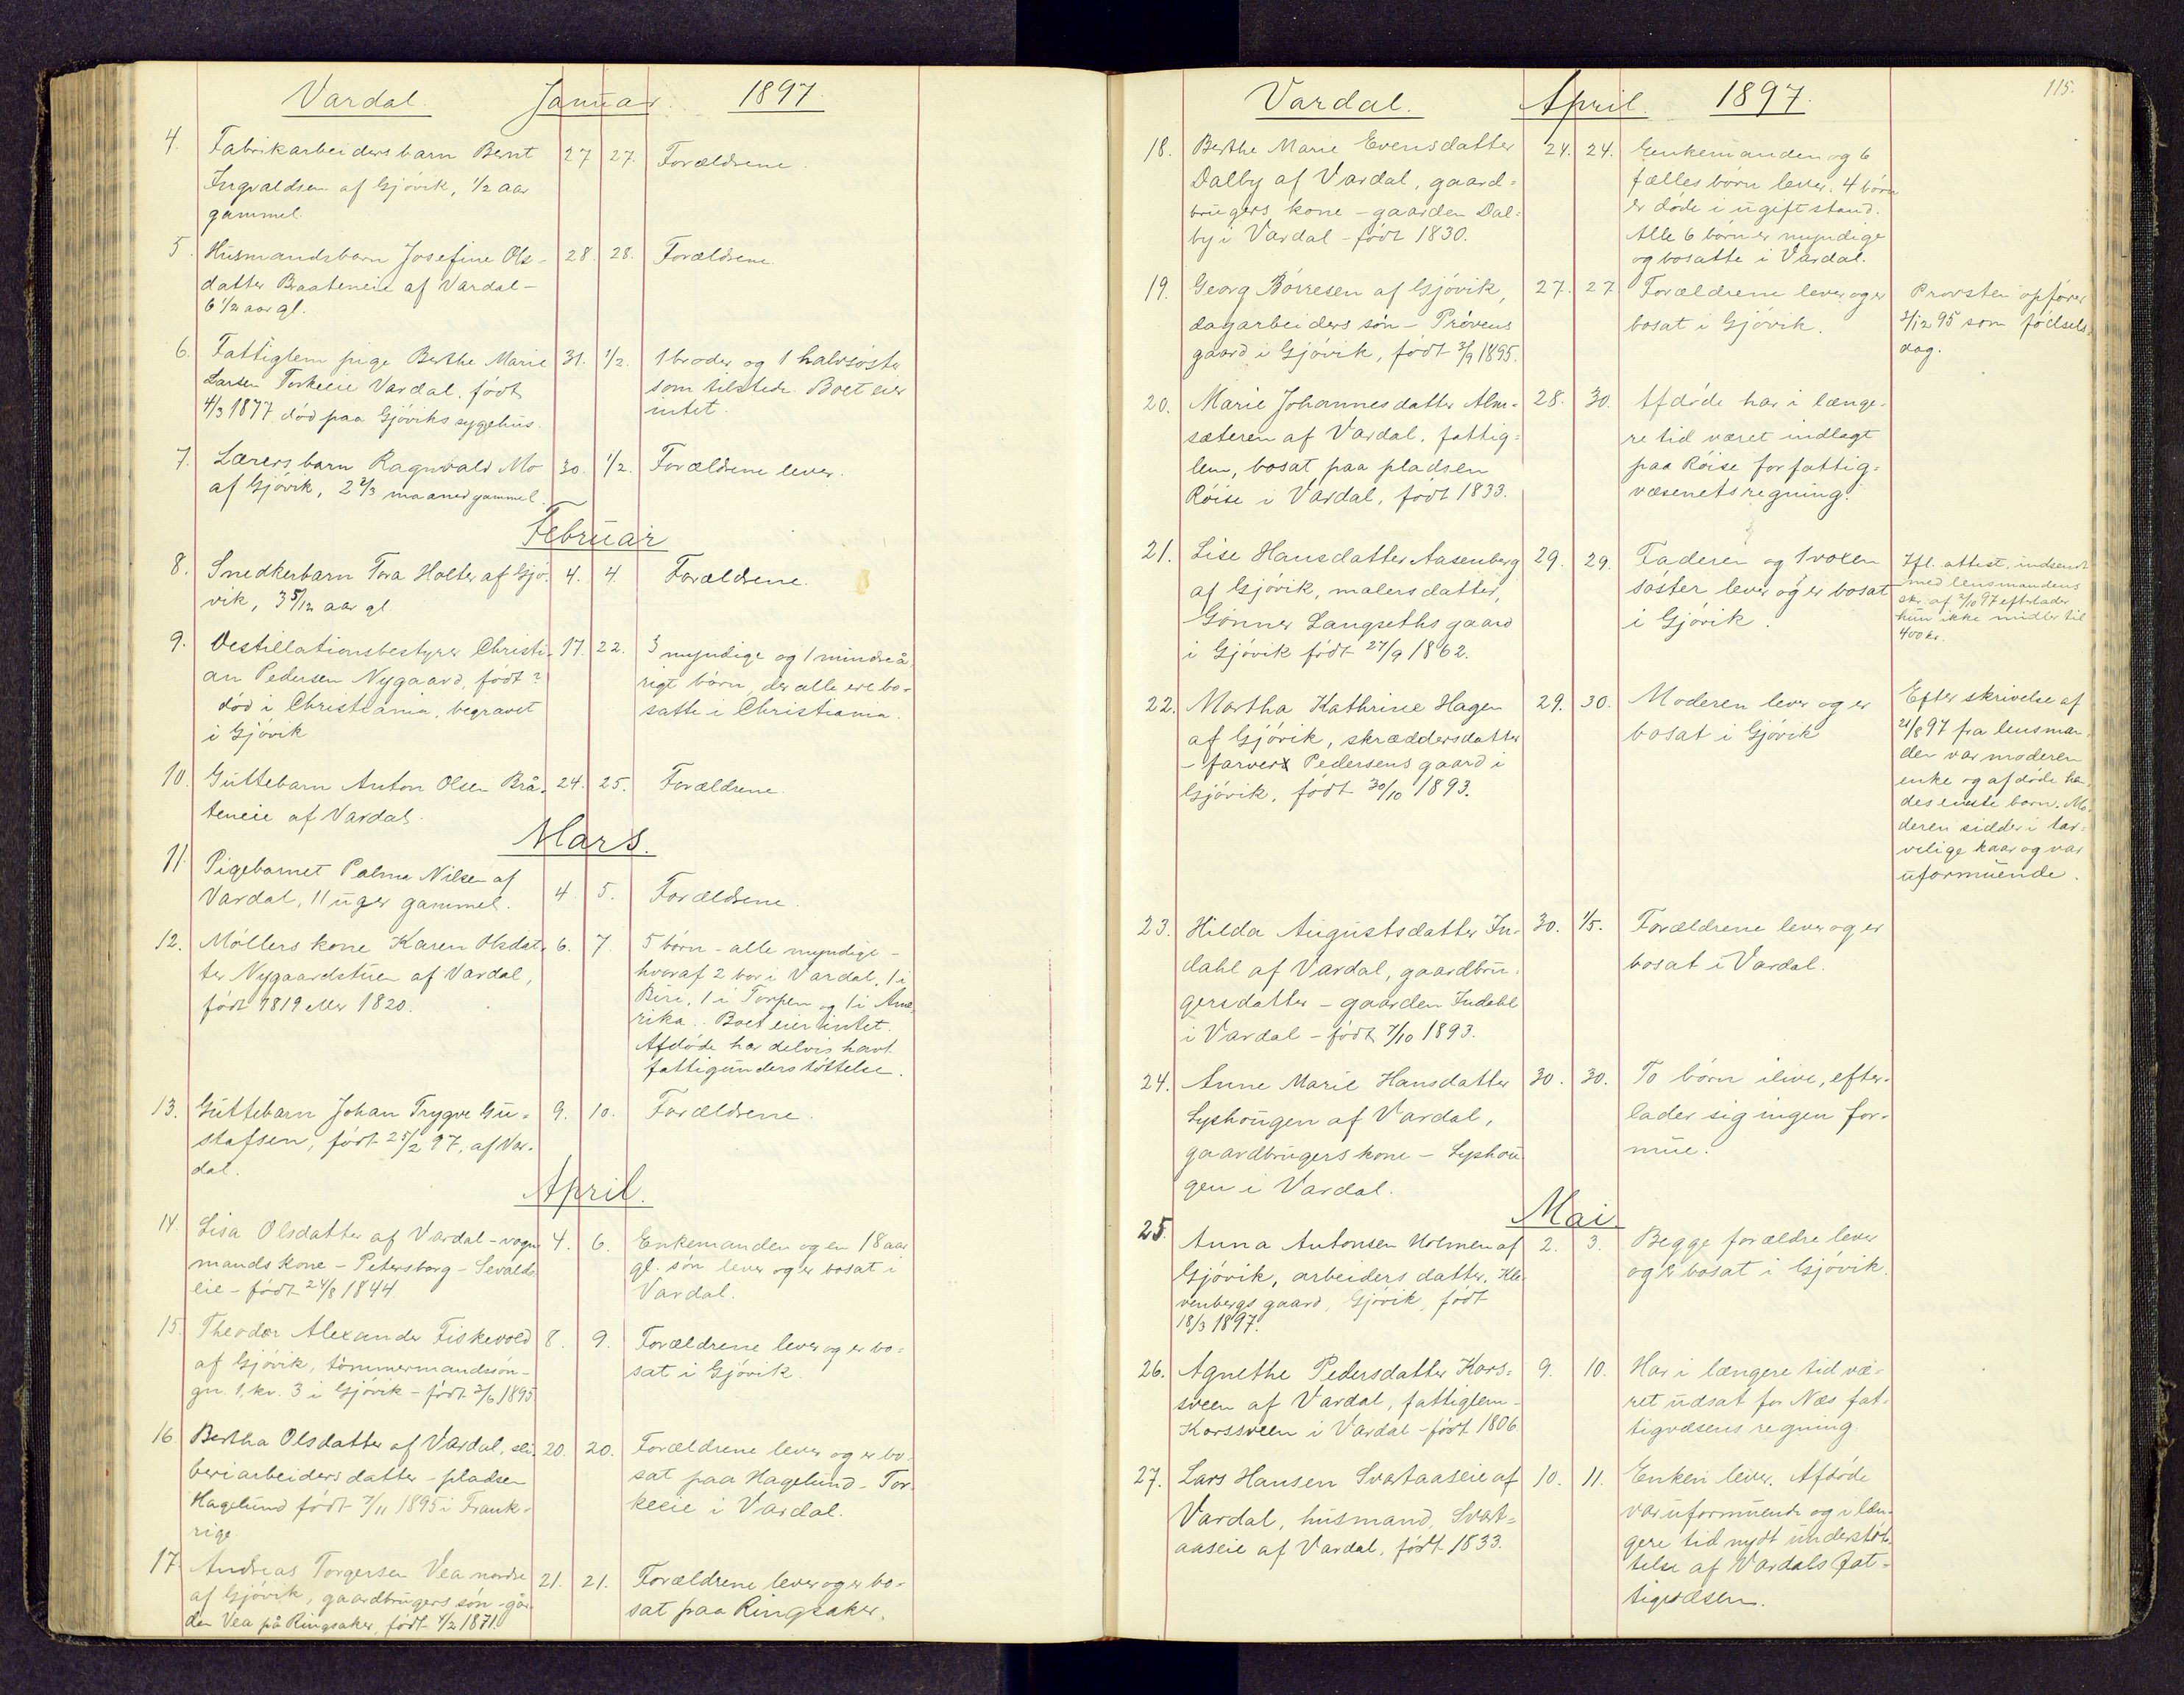 Vardal. Januar. 1897.
4. Fabrikarbeidersbarn Bernt 27 27. Forældrene.
Ingvaldsen af Gjövik, 1/2 aar
gammel.
5. Husmandsbarn Josefine Ols- 28. 28. Forældrene.
datter Braateneie af Vardal-
6 1/2 aar gl.
6. Fattiglem pige Berthe Marie 31. 1/2. 1 broder og 1 halvsöster
Larsen Torkeeie Vardal, född som tilstede. Boet eier
4/3 1877 död paa Gjöviks sygehus. intet.
7. Lærersbarn Ragnvald Mo 30. 1/2. Forældrene lever.
af Gjövik, 2 2/3 maaned gammel.
Februar
8. Snedkerbarn Tora Holter af Gjö- 4. 4. Forældrene.
vik, 3 5/12 aar gl.
9. Destillationsbestyrer Christi- 17. 22. 3 myndige og 1 mindreå-
an Pedersen Nygaard, födt? rigt börn, der alle ere bo-
död i Christiania, begravet satte i Christiania.
i Gjövik
10. Guttebarn Anton Olsen Brå- 24. 25. Forældrene.
teneie af Vardal.
Mars.
11. Pigebarnet Palma Nilsen af
Vardal, 11 uger gammel. 4. 5. Forældrene.
12. Möllers kone Karen Olsdat- 6. 7. 5 börn - alle myndige -
ter Nygaardstuen af Vardal, hvoraf 2 bor i Vardal, 1 i
födt 1819 eller 1820. Biri, 1 i Torpen og 1 i Ame-
rika. Boet eier intet.
Afdöde har delvis havt
fattigunderstöttelse.
13. Guttebarn Johan Trygve Gu- 9. 10. Forældrene.
stafsen, födt 25/2 97, af Var-
dal.
April.
14. Lisa Olsdatter af Vardal - vogn- 4. 6. Enkemanden og en 18 aar
mands kone - Petersborg - Sevalds- gl. sön lever og er bosat i
eie - födt 24/8 1844. Vardal.
15. Theodor Alexander Fiskevold 8. 9. Forældrene lever og er bo-
af Gjövik, tömmermandssön - sat i Gjövik.
gn. 1, kv. 3 i Gjövik - födt 2/6 1895.
16. Bertha Olsdatter af Vardal, sli- 20. 20. Forældrene lever og er bo-
beriarbeiders datter - pladsen sat paa Hagelund - Tor-
Hagelund födt 7/11 1895 i Frank- keeie i Vardal.
rige.
17. Andreas Torgersen Vea nordre 21. 21. Forældrene lever og er bo-
af Gjövik, gaardbrugers sön - går- sat paa Ringsaker.
den Vea på Ringsaker, födt 4/2 1871.
115.
Vardal. April 1897.
18. Berthe Marie Evensdatter 24. 24. Enkemanden og 6
Dalby af Vardal, gaard- fælles börn lever. 4 börn
brugers kone - gaarden Dal- er döde i ugift stand.
by i Vardal - födt 1830. Alle 6 börn er myndige
og bosatte i Vardal.
19. Georg Börresen af Gjövik, 27. 27. Forældrene lever og er Provsten opförer
dagarbeiders sön - Prövens bosat i Gjövik. 2/12 95 som födsels-
gaard i Gjövik, födt 2/9 1895. dag.
20. Marie Johannesdatter Alm- 28. 30. Afdöde har i længe-
sæteren af Vardal, fattig- re tid været indlagt
lem, bosat paa pladsen paa Röise for fattig-
Röise i Vardal, födt 1833. væsenets regning.
21. Lise Hansdatter Aasenberg 29. 29. Faderen og 1 voxen Ifl. attest, indsendt
af Gjövik, malers datter, söster lever og er bosat med lensmandens
Gönner Langseths gaard i Gjövik. skr. af 2/10 97 efterlader
i Gjövik födt 27/9 1862. hun ikke midler til
400 kr.
22. Martha Kathrine Hagen 29. 30. Moderen lever og er Efter skrivelse af
af Gjövik, skræddersdatter bosat i Gjövik 21/8 97 fra lensman-
- farver Pedersens gaard i den var moderen
Gjövik, födt 30/10 1893. enke og afdöde hen-
des eneste barn. Mo-
deren sidder i tar-
velige kaar og var
uformuende.
23. Hilda Augustsdatter In- 30. 1/5. Forældrene lever og er
dahl af Vardal, gaardbru- bosat i Vardal.
gersdatter - gaarden Indahl
i Vardal - födt 7/10 1893.
24. Anne Marie Hansdatter 30. 30. To börn ilive, efter-
Lyshougen af Vardal, lader sig ingen for-
gaardbrugers kone - Lyshou- mue.
gen i Vardal.
Mai
25. Anna Antonsen Holmen af 2. 3. Begge forældre lever
Gjövik, arbeiders datter, Kle- og er bosat i Gjövik.
venbergs gaard, Gjövik, födt
18/3 1897.
26. Agnethe Pedersdatter Kors- 9. 10. Har i længere tid væ-
sveen af Vardal, fattiglem - ret udsat for Næs fat-
Korssveen i Vardal - födt 1806. tigvæsens regning.
27. Lars Hansen Svartaaseie af 10. 11. Enken lever. Afdöde
Vardal, husmand, Svart- var uformuende og i læn-
aaseie af Vardal, födt 1833. gere tid nydt understöt-
telse af Vardals fat-
tigvæsen.